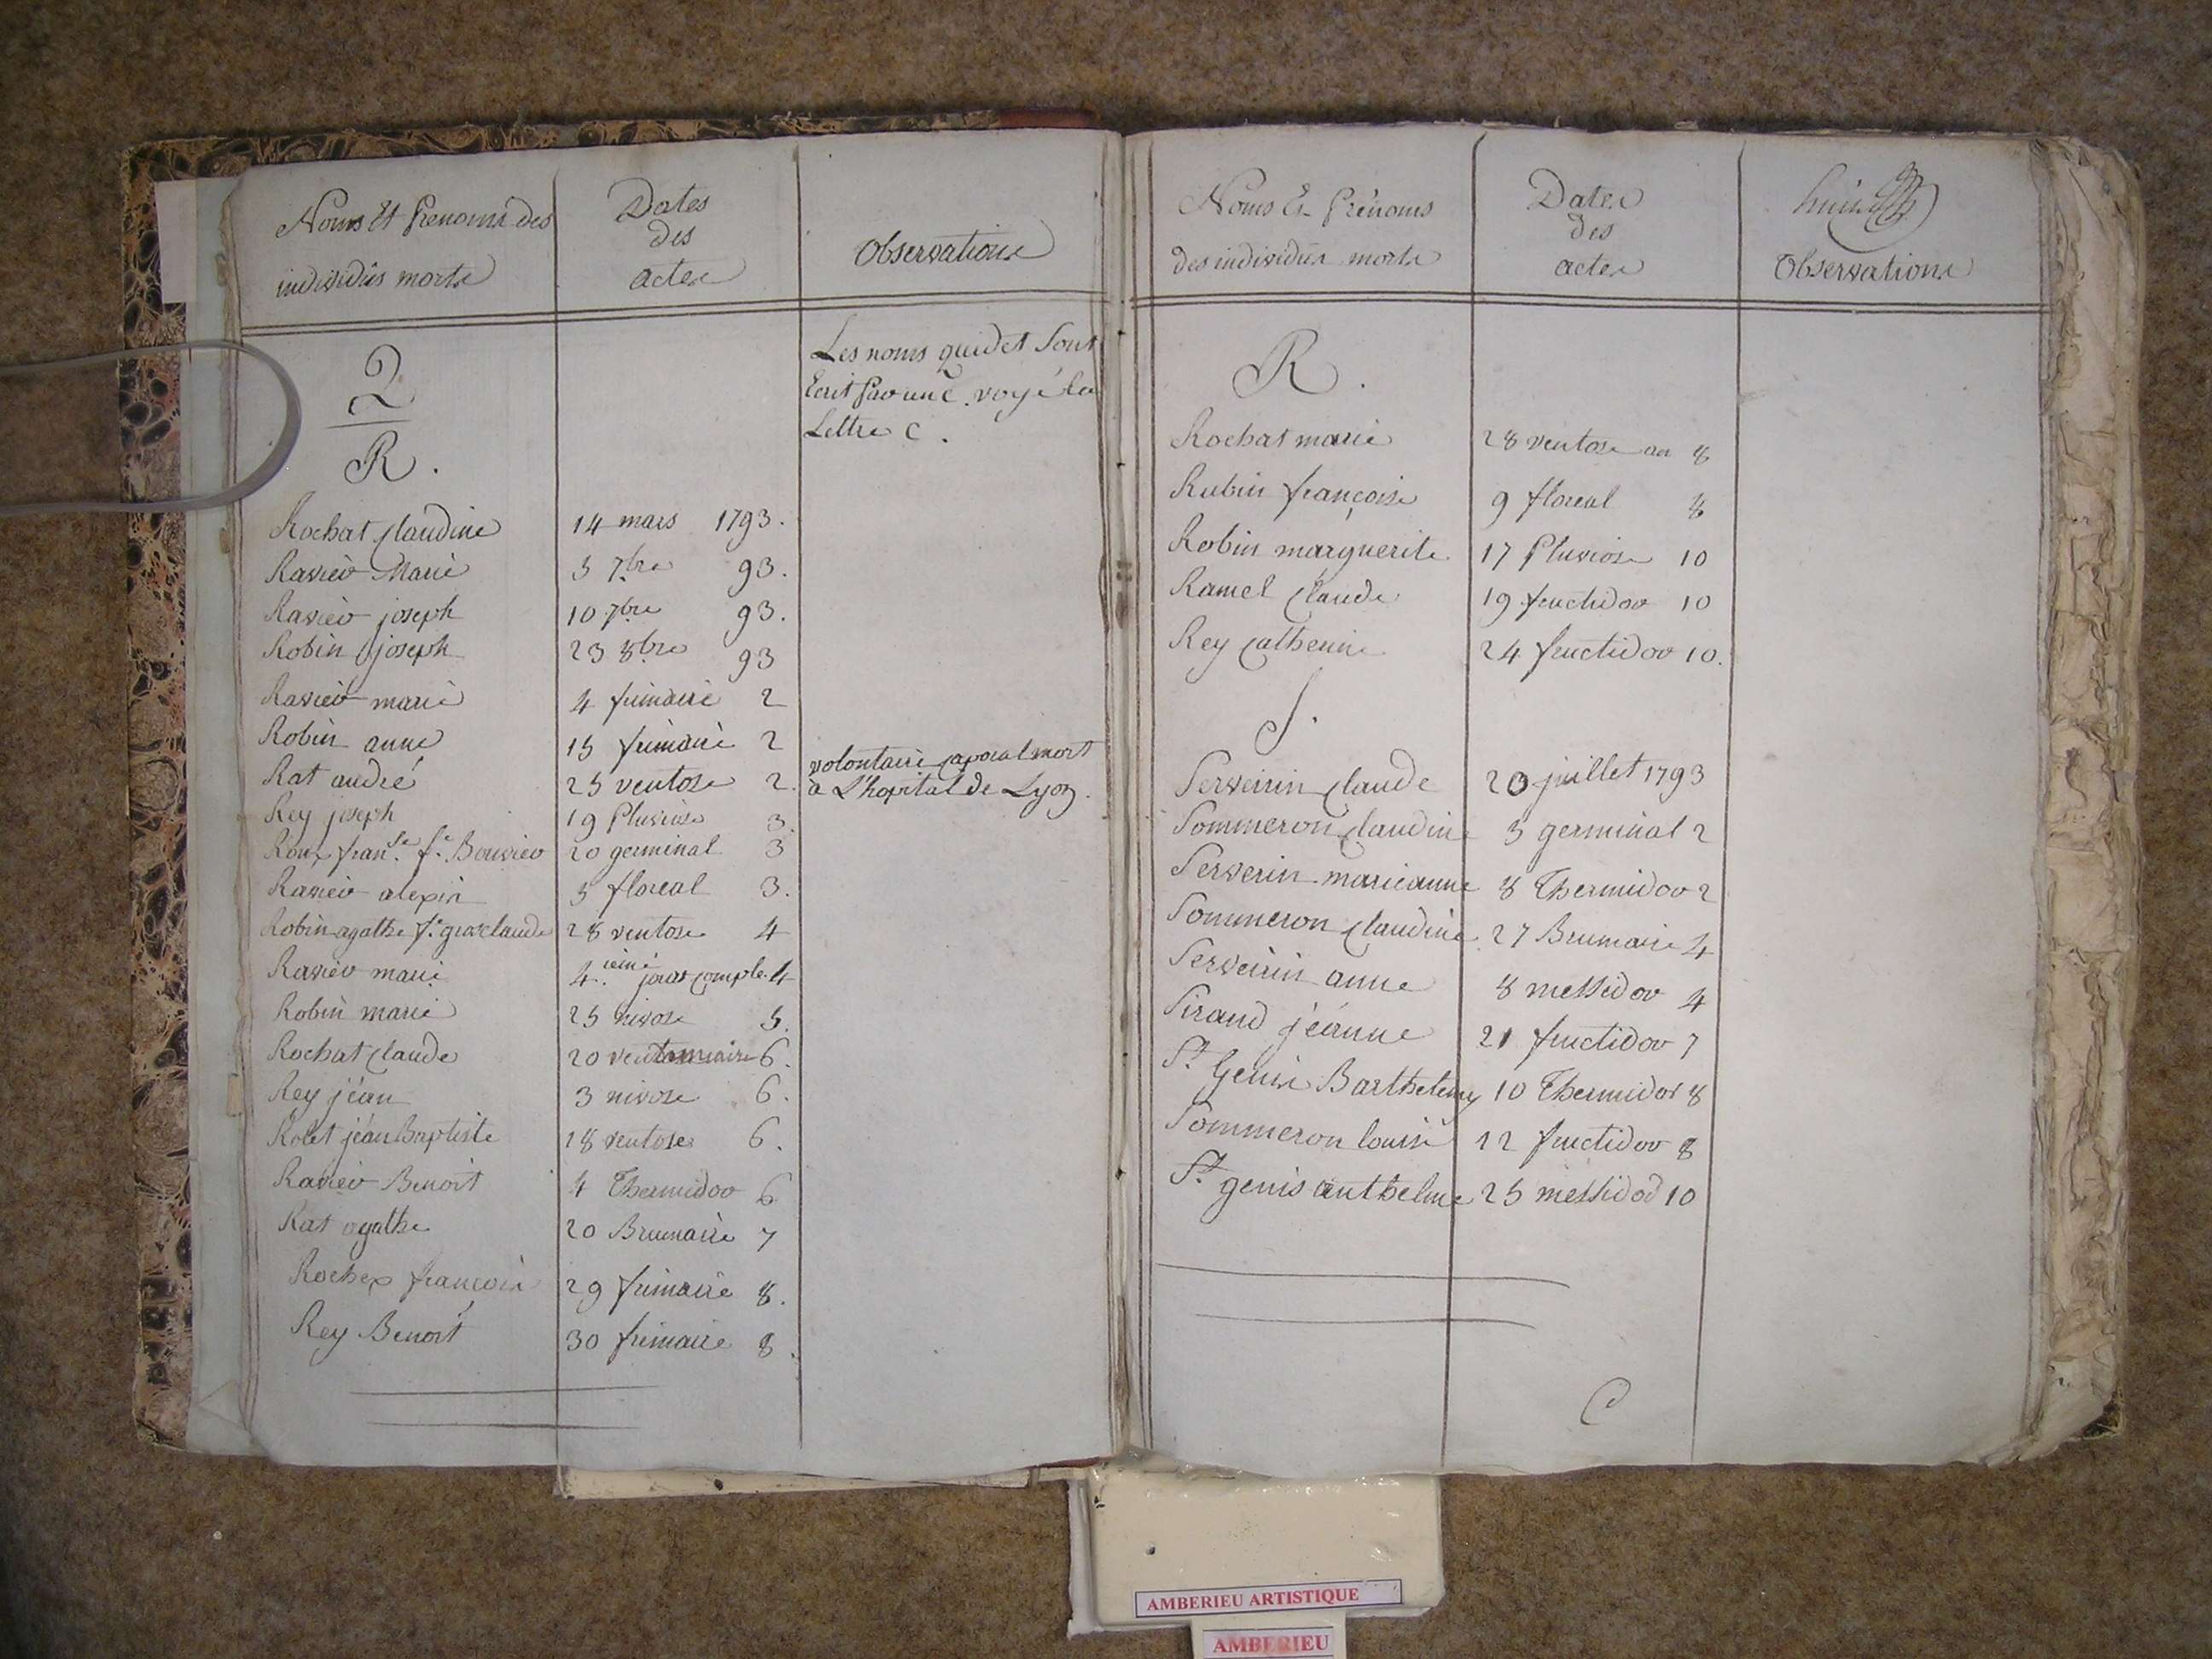 Noms Et Prenoms des individûs morts
Dates des actes
Observations
Q
Les noms quidet Sont
Ecrit Par un C. voyé la
Lettre C.
R.
Rochat Claudine 14 mars 1793.
Ravier Marie 5 7bre 93.
Ravier joseph 10 7bre 93.
Robin joseph 23 8bre 93
Ravier marie 4 frimaire 2
Robin anne 15 frimaire 2
Rat andré 25 ventose 2. volontaire caporal mort
à L'hopital de Lyon.
Rey joseph 19 Pluviose 3.
Roux fran.se f.e Bouvier 20 germinal 3
Ravier alexis 5 floreal 3.
Robin agathe f.e grosclaude 28 ventose 4
Ravier marie 4.ieme jour comple. 4
Robin marie 25 nivose 5.
Rochat Claude 20 vendemiaire 6.
Rey jéan 3 nivose 6.
Rolet jéan Baptiste 18 ventose 6.
Ravier Benoit 4 Thermidor 6
Rat agathe 20 Brumaire 7
Rochex francois 29 frimaire 8.
Rey Benoit 30 frimaire 8.
Noms Et Prénoms
des individus morts
Dates des actes
Observations
R.
Rochat marie 28 ventose an 8
Rubin françoise 9 floreal 8
Robin marguerite 17 Pluviose 10
Ramel Claude 19 fructidor 10
Rey Catherine 24 fructidor 10.
S.
Serverin Claude 20 juillet 1793
Sommeron Claudine 5 germinal 2
Serverin marieanne 8 Thermidor 2
Sommeron Claudine 27 Brumaire 4
Serverin anne 8 messidor 4
Sirand jéanne 21 fructidor 7
St. Genis Barthelemy 10 Thermidor 8
Sommeron louise 12 fructidor 8
St. genis anthelme 25 messidor 10
C
AMBERIEU ARTISTIQUE
AMBERIEU